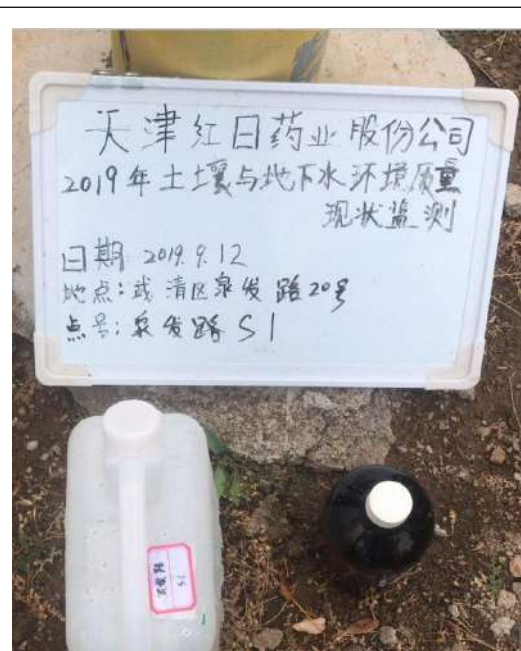 天津红日药业股份公司
2019年土壤与地下水环境质量
现状监测
日期:2019.9.12
地点:武清区泉发路20号
点号:泉发路S1
泉发路
S1